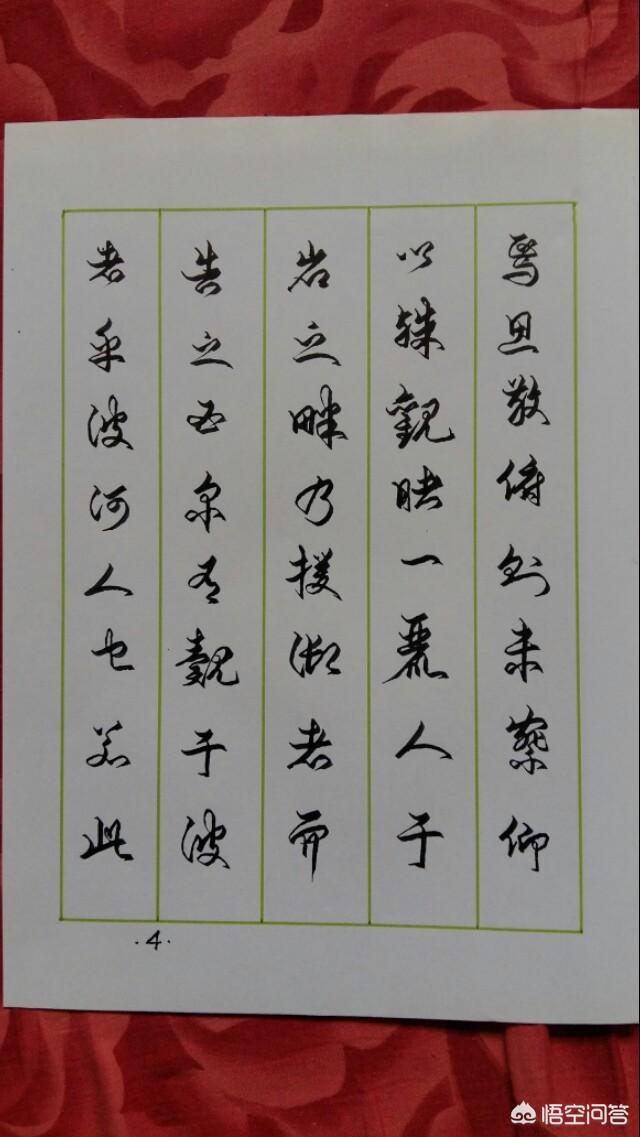 焉思散俯则未察仰
以殊觀睹一麗人于
岩之畔乃援御者而
告之尔有覿于彼
者乎彼何人也若此
·4·
悟空问答